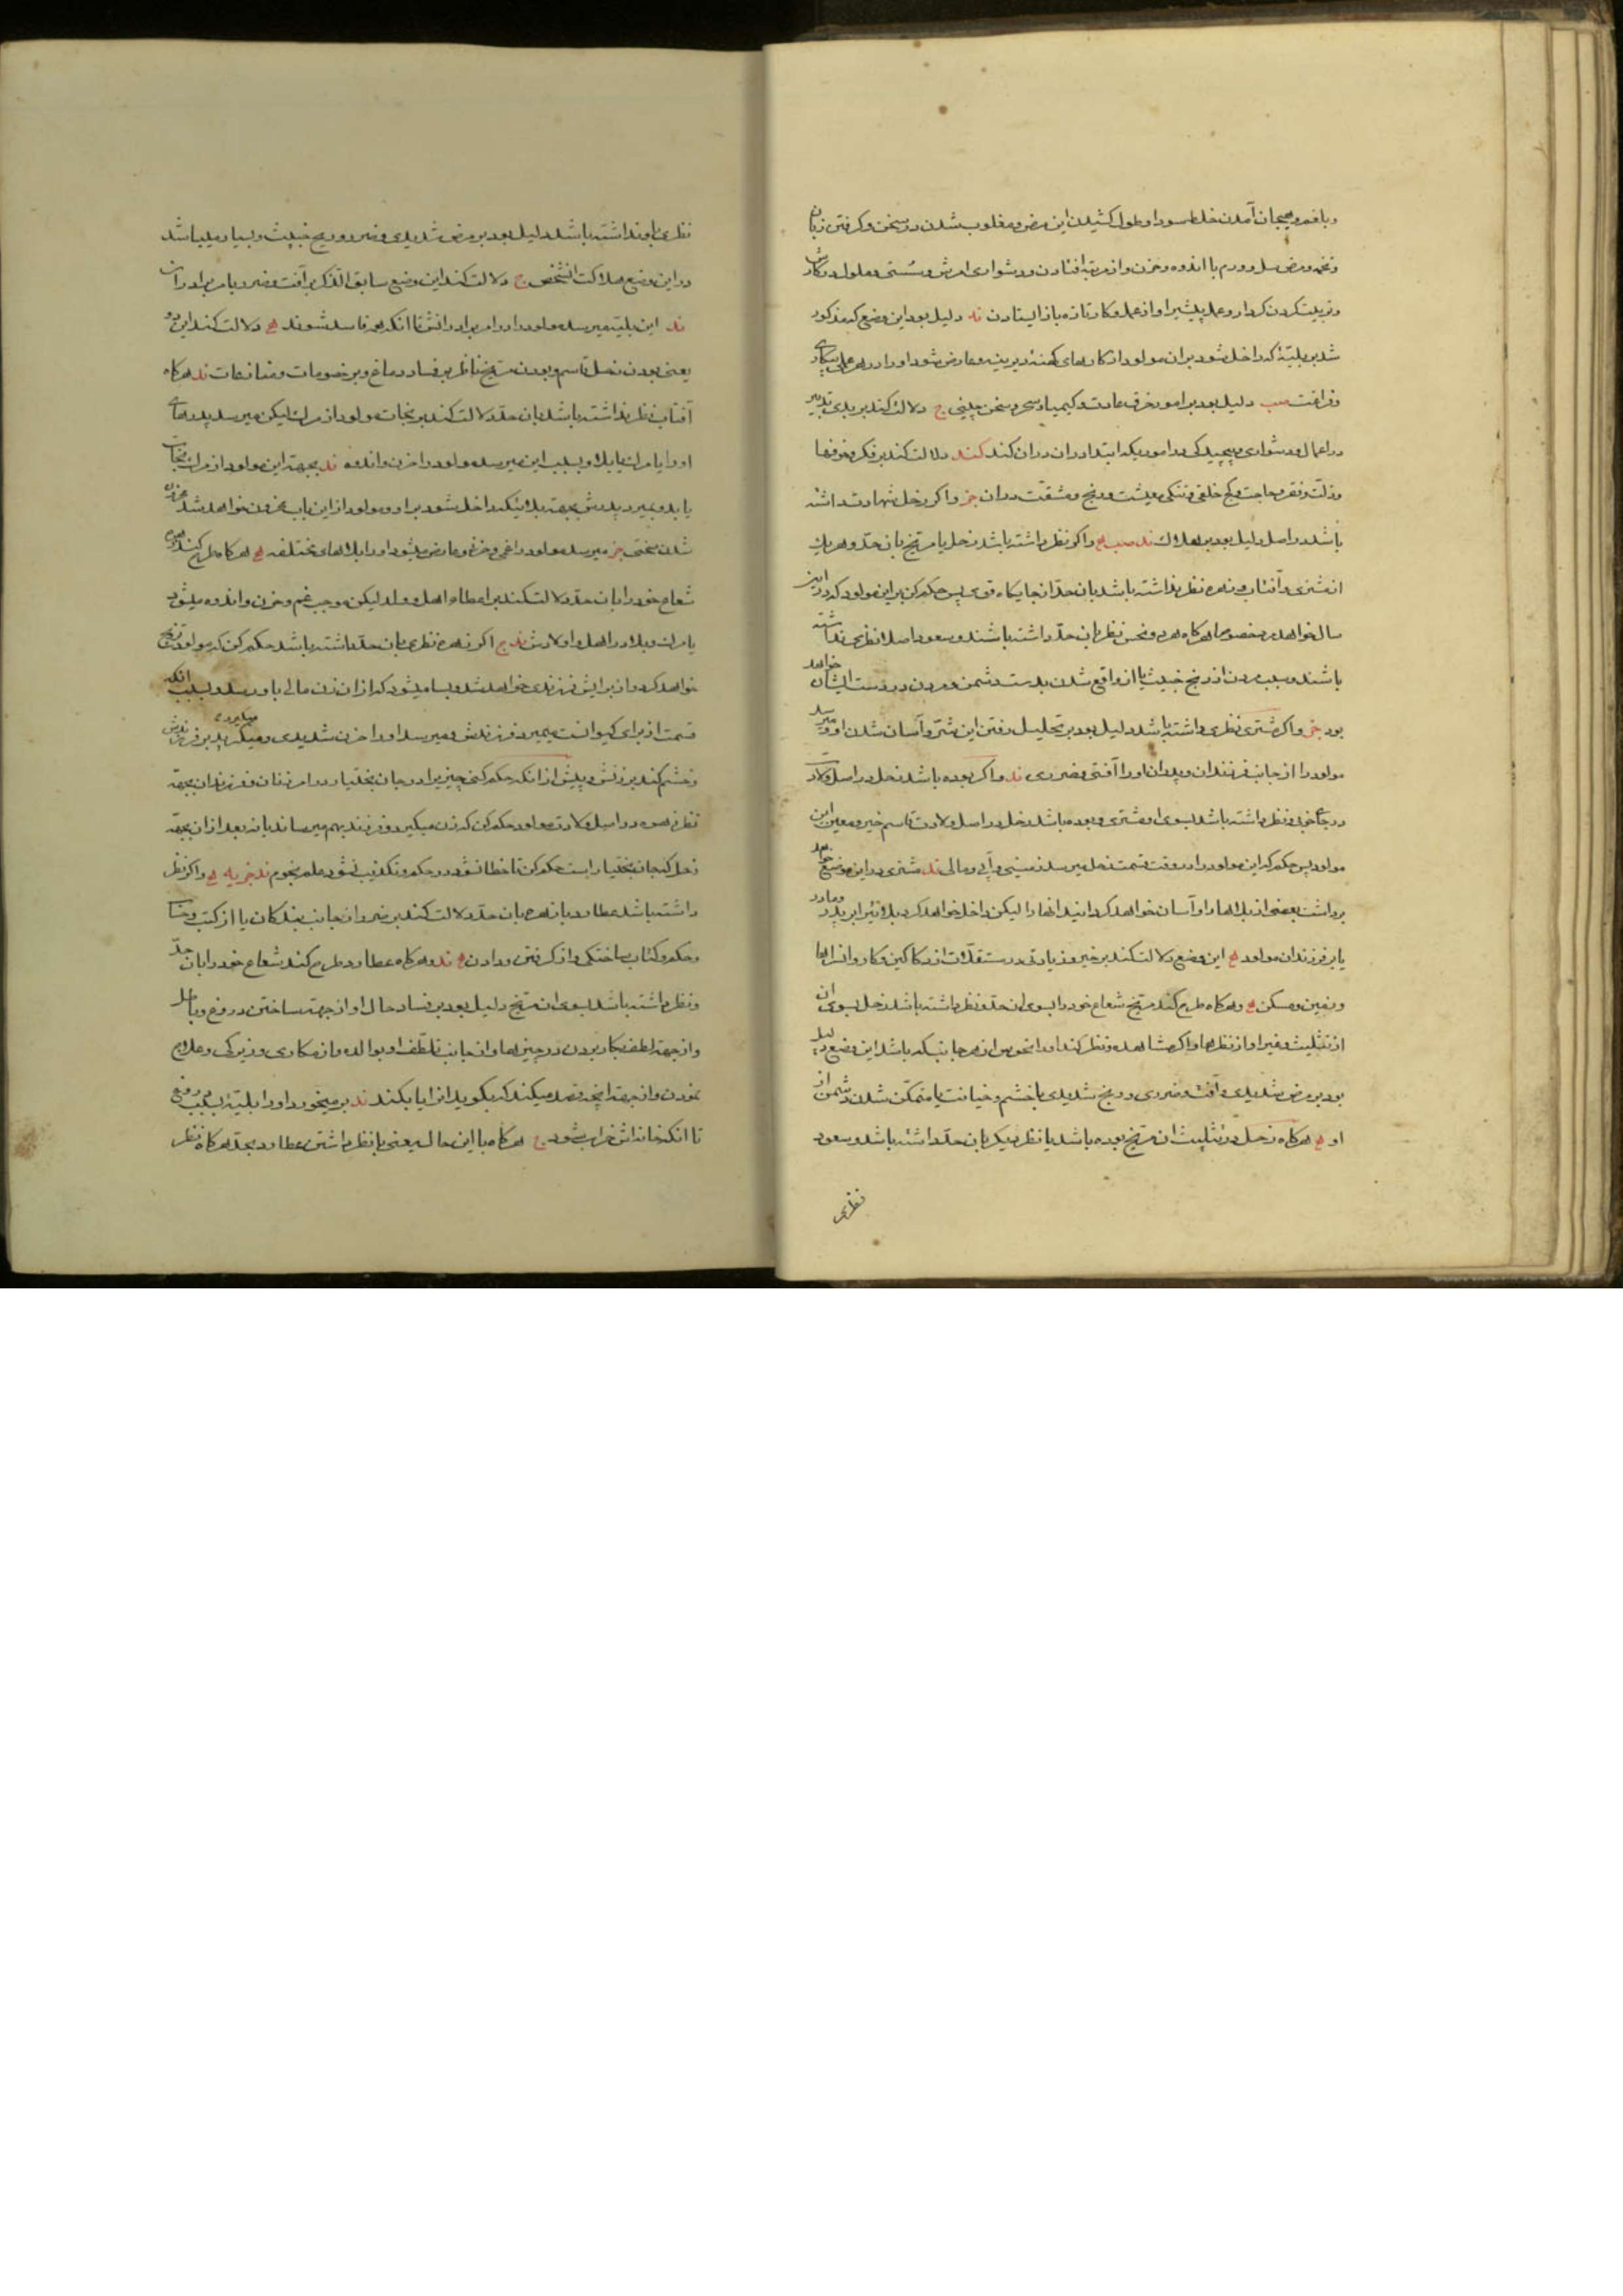 و بلغم و بهیجان آمدن خلط سودا و طول کشیدن این مرض و مغلوب شدن در سخن و گرفتن زبان
و تخمه و مرض سل و ورم با اندوه و حزن و از مرتبه افتادن و دشواری امرش و سستی و ملول در کارش
و تربیت کردن کردار و عمل پیشیر او از عمل و کار تازه باز ایستادن ند دلیل بود این وضع که مذکور
شد بر بلیتهٔ که داخل شود بران مولود از کارهای کهنهٔ دیرینه و عارض شود او را در هر عملی بیکاری
و فراغت صب دلیل بود بر امور خرق عادت و کیمیا و سحر و سخن چینی ج دلالت کند بر بدی تدبیر
در اعمال و دشواری و پیچیدگی در اموریکه ابتدا دران دران کند کند دلالت کند بر فکر و خوفها
و ذلت و فقر و حاجت و کج خلقی و تنگی معیشت و رنج و مشقت دران خر و اگر زحل شهادت داشته
باشد در اصل دلیل بود بر هلاک ند صب هج و اگر نظر داشته باشد زحل یا مریخ بان حد و هریک
از مشتری و آفتاب و زهره نظر نداشته باشد بان حد از جایگاه قوی پس حکم کن بر این مولود که در این
سال خواهد مرد خصوصا هرگاه هر دو نحس نظر بان حد داشته باشند و سعود اصلا نظری نداشته
باشند و سبب مردن از رنج خبیث یا از واقع شدن بدست دشمن و مردن در دست ایشان خواهد
بود خر و اگر مشتری نظری داشته باشد دلیل بود بر تحلیل رفتن این شر و آسان شدن او و میرسد
مولود را از جانب فرزندان و پدران او را آفتی و ضرری ند و اگر بوده باشد زحل در اصل ولادت
در جای خوبی و نظر داشته باشد بسوی او مشتری و بوده باشد زحل در اصل ولادت قاسم خیر و معین این
مولود پس حکم کن این مولود را در وقت قسمت زحل میرسد زمینی و آبی و مالی ند مشتری در این موضع خواهد
برداشت بعضی از بلاها را و آسان خواهد گردانید انها را لیکن داخل خواهد کرد بلائی را بر پدر و مادر
یا بر فرزندان مولود هج این وضع دلالت کند بر خیر و زیادتی در مستقلات از دکاکین و کاروانسراها
و زمین و مسکن هج و هرگاه طرح کند مریخ شعاع خود را بسوی ان حد و نظر داشته باشد زحل بسوی ان
از تثلیث و غیر او از نظرها و اگر مشاهده و نظر کند او را نحوس از هر جانب که باشد این وضع دلیل
بود بر مرض شدیدی و آفت و ضرری و رنج شدیدی با خشم و خیانت یا متمکن شدن دشمن از
او هج هرگاه زحل در تثلیث ان مریخ بوده باشد یا نظر دیگر بان حد داشته باشد و سعود
نظری
نظری باو نداشته باشد دلیل بود بر مرض شدیدی و ضرر و ریح خبیث و بسیار میباشد
در این وضع هلاکت الشخص ج دلالت کند این وضع سابق الذکر بر آفت و ضرر و یا مرگ برادران
ند این بلیته میرسد مولود را در امر برادرانش تا انکه هر فاسد شوند هج دلالت کند این دو
یعنی بودن زحل قاسم و بودن مریخ ناظر بر فساد دماغ و بر خصومات و منازعات ند هرگاه
آفتاب نظر نداشته باشد بان حد دلالت کند بر نجات مولود از مرگ لیکن میرسد پدرهای
او را یا مرگ یا بلا و بسبب این میرسد مولود را حزن و اندوه ند بجهة این مولود از مرگ نجات
یابد و بمیرد پدرش بجهة بلائیکه داخل شود بر او و مولود از این باب محزون خواهد شد حزن
شدن سختی خر میرسد مولود را غمی و حزنی و عارض میشود او را بلاهای مختلفه هج هرگاه طرح کند زهره
شعاع خود را بان حد دلالت کند بر اعطاء اهل و ولد لیکن موجب غم و حزن و اندوه میشود
یا مرگ و بلا در اهل و اولادش ند ج اگر زهره نظری بان حد داشته باشد حکم کن که مولود تزویجی
خواهد کرد و از برایش فرزندی خواهد شد و بسا میشود که از ان زن مالی باو رسد و بسبب انکه
قسمت از برای کیوانست میمیرد فرزندش و میرسد او را حزن شدیدی و میگرید بر فرزندش
و خشم کند بر زنش و پیش از انکه حکم کنی چیزیرا در جان بختیار در امر زنان و فرزندان بجهة
نظر زهره در اصل ولادت مولود حکم کن که زن میگیرد و فرزند بهم میرساند یا نه بعد از ان بجهة
زحل که جان بختیار است حکم کن تا خطا نشود در حکم و تکذیب نشود علم نجوم ند خر یه هج و اگر نظر
داشته باشد عطارد یا زهره بان حد دلالت کند بر ضرر از جانب بندگان یا از کتب و حساب
و حکم و کتاب ساختگی و از گرفتن و دادن هج ند و هرگاه عطارد طرح کند شعاع خود را بان حد
و نظر داشته باشد بسوی ان مریخ دلیل بود بر فساد حال او از جهة ساختن دروغ و باطل
و از جهة لطف بکار بردن در چیزها و از جانب تلطف او بوالده و از مکاری و زیرکی و علاج
نمودن و از جهة انچه قصد میکند که بگوید انرا یا بکند ند بر میخورد او را بلیته بسبب دروغی
تا انکه خانه‌اش خراب شود ج هرگاه با این حال یعنی با نظر داشتن عطارد بحد هرگاه نظر